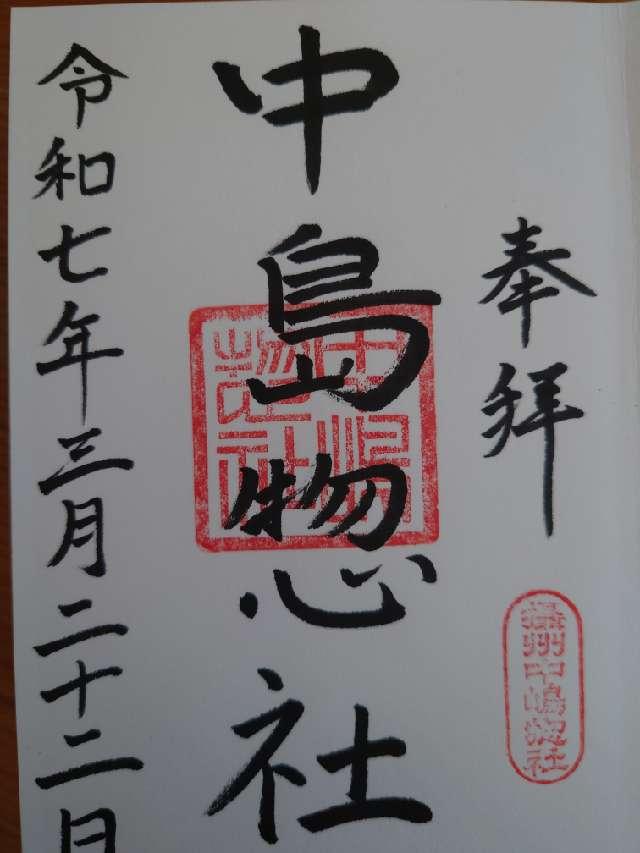 奉拝
摂州中嶋惣社
中島惣社
中嶋惣社
令和七年三月二十二日